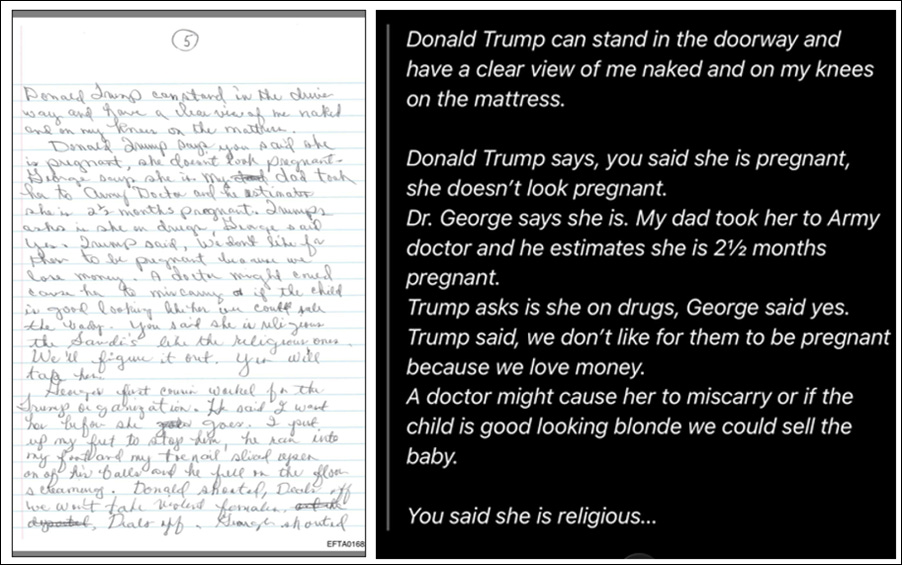 5
Donald Trump can stand in the door
way and have a clear view of me naked
and on my knees on the mattress.
Donald Trump says you said she
is pregnant, she doesnt look pregnant-
George says she is. My dad took
her to Army Doctor and he estimates
she is 2½ months pregnant. Trump
asks is she on drugs, George said
yes. Trump said, we dont like for
them to be pregnant because we
lose money. A doctor might could
cause her to miscarry or if the child
is good looking like her we could sale
the baby. You said she is religious
the Saudi's like the religious ones.
We'll figure it out. You will
take her.
George's first cousin worked for the
Trump organization. He said I want
her before she goes. I put
up my feet to stop him, he ran into
my foot and my toenail sliced open
on of his balls and he fell on the floor
screaming. Donald shouted, Deals off
we won't take violent females,
Deals off. George shouted
EFTA0168
Donald Trump can stand in the doorway and
have a clear view of me naked and on my knees
on the mattress.
Donald Trump says, you said she is pregnant,
she doesn't look pregnant.
Dr. George says she is. My dad took her to Army
doctor and he estimates she is 2½ months
pregnant.
Trump asks is she on drugs, George said yes.
Trump said, we don't like for them to be pregnant
because we love money.
A doctor might cause her to miscarry or if the
child is good looking blonde we could sell the
baby.
You said she is religious...